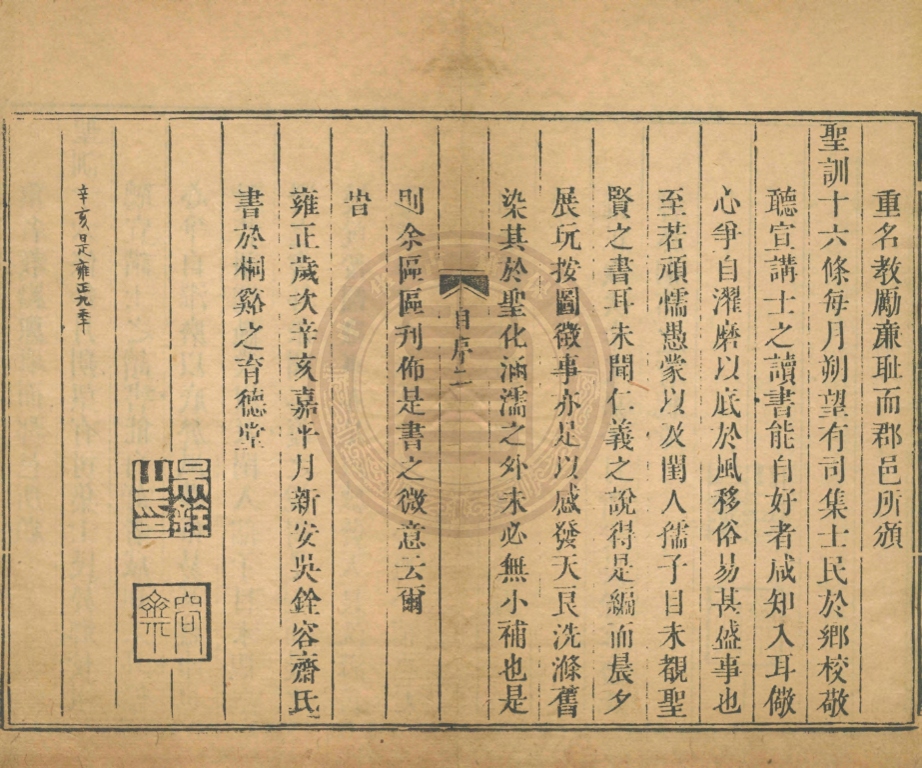 重名教勵廉耻而郡邑所頒
聖訓十六條每月朔望有司集士民於鄉校敬
聽宣講士之讀書能自好者咸知入耳儆
心爭自濯磨以底於風移俗易甚盛事也
至若頑懦愚蒙以及閨人孺子目未覩聖
賢之書耳未聞仁義之說得是編而晨夕
展玩按圖徵事亦足以感發天良洗滌舊
染其於聖化涵濡之外未必無小補也是
自序二
則余區區刊佈是書之微意云爾
旹
雍正歲次辛亥嘉平月新安吳銓容齋氏
書於桐谿之育德堂
吳銓之印
容齋
辛亥是雍正九年